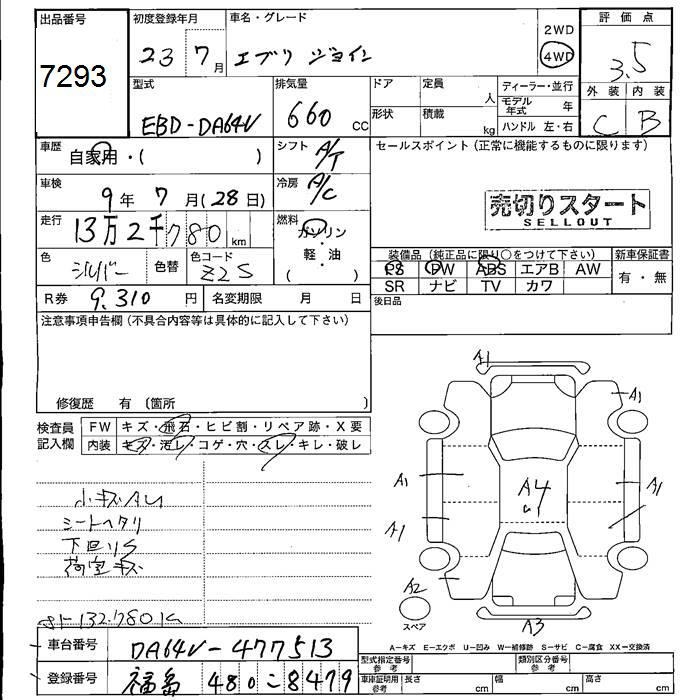 出品番号 初度登録年月 車名・グレード 評価点
7293 23 7月 エブリ ジョイン 2WD 4WD 3.5
型式 排気量 ドア 定員 人 ディーラー・並行 外装 内装
EBD-DA64V 660 cc 形状 積載 kg モデル年式 年 C B
ハンドル 左・右
車歴 自家用・( ) シフト A/T セールスポイント (正常に機能するものに限ります)
車検 9年 7月 (28日) 冷房 A/C
売切りスタート
SELLOUT
走行 13万2千780km 燃料 ガソリン・軽油 ( )
色 シルバー 色替 色コード Z2S
装備品 (純正品に限り○をつけて下さい) 新車保証書
PS PW ABS エアB AW 有・無
SR ナビ TV カワ
R券 9,310円 名変期限 月 日 後日品
注意事項申告欄 (不具合内容等は具体的に記入して下さい)
修復歴 有 〔箇所 〕
検査員記入欄 FW キズ・飛石・ヒビ割・リペア跡・X要
内装 キズ・汚レ・コゲ・穴・スレ・キレ・破レ
小キズAU
シートヘタリ
下回りS
荷室キズ
132.780K
A1
A1
A1
A1
A4
U1
A1
A2
スペア
A3
A-キズ E-エクボ U-凹み W-補修跡 S-サビ C-腐食 XX-交換済
車台番号 DA64V-477513
型式指定番号 参考 類別区分番号 参考
登録番号 福島 480こ8479
車庫証明用 参考 長さ cm 幅 cm 高さ cm